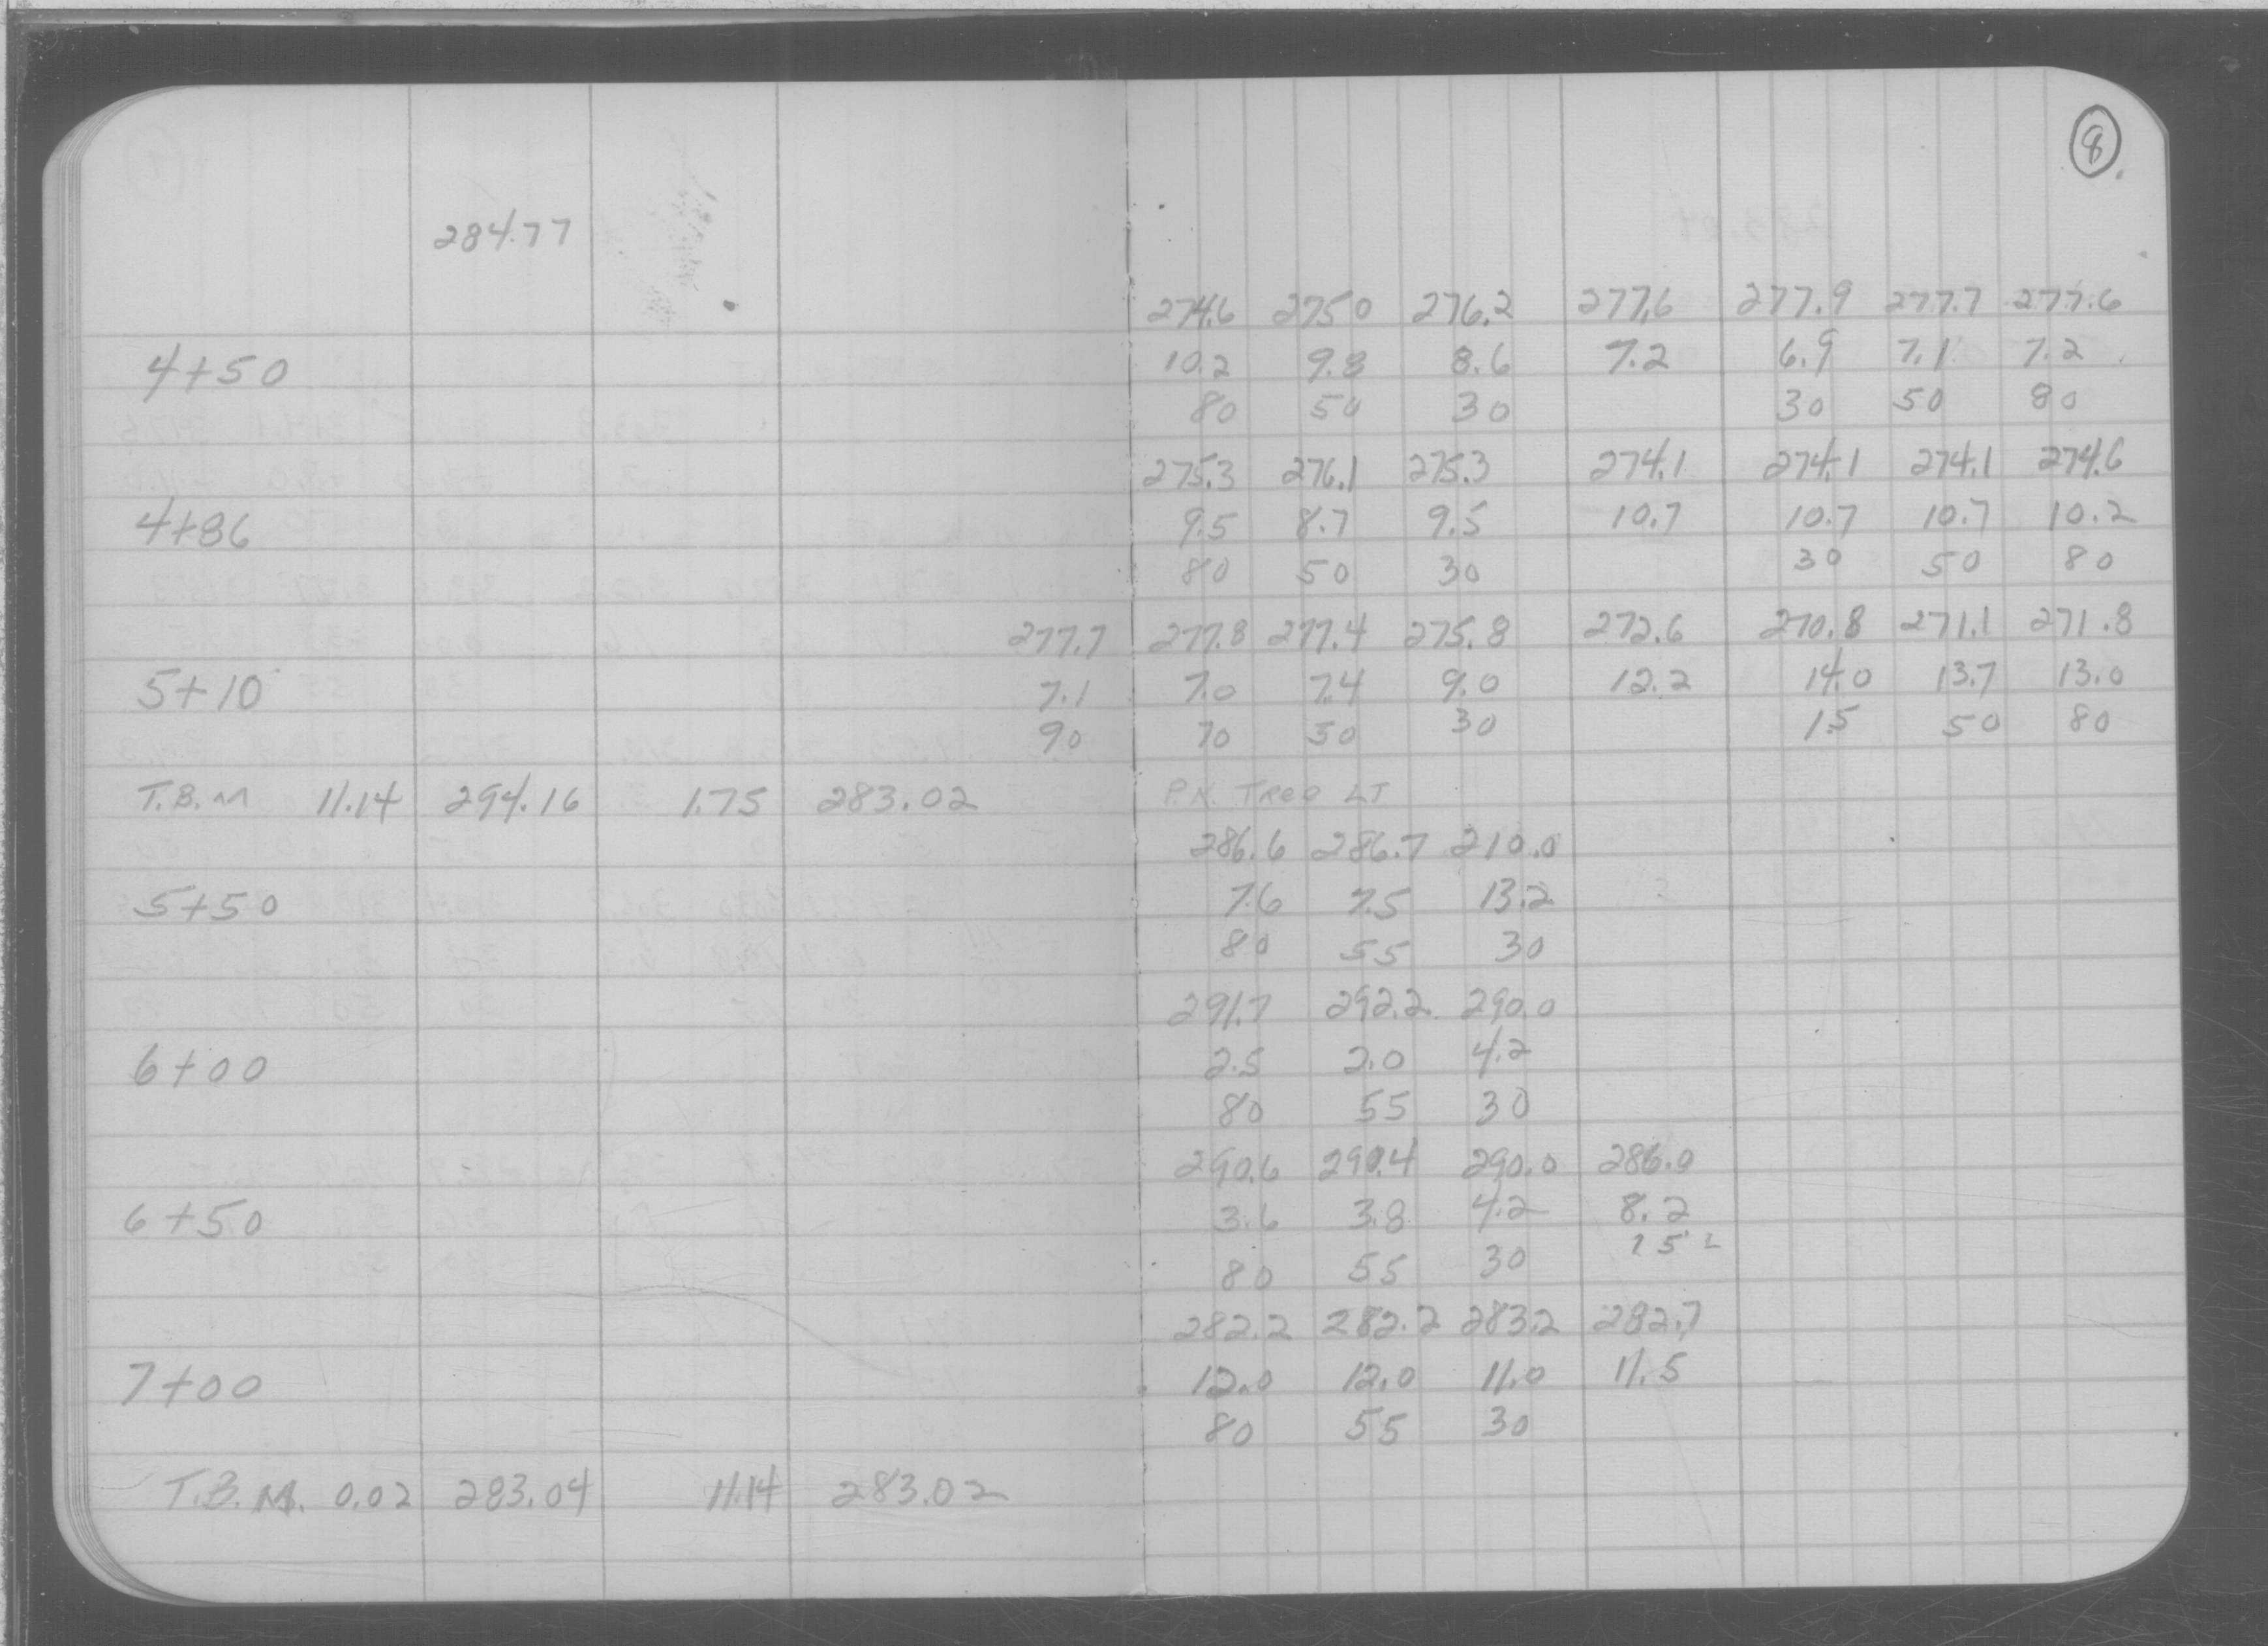 8
284.77
274.6 275.0 276.2 277.6 277.9 277.7 277.6
4+50 10.2 9.8 8.6 7.2 6.9 7.1 7.2
80 50 30 30 50 80
275.3 276.1 275.3 274.1 274.1 274.1 274.6
4+86 9.5 8.7 9.5 10.7 10.7 10.7 10.2
80 50 30 30 50 80
277.7 277.8 277.4 275.8 272.6 270.8 271.1 271.8
5+10 7.1 7.0 7.4 9.0 12.2 14.0 13.7 13.0
90 70 50 30 15 50 80
T.B.M 11.14 294.16 1.75 283.02 P.K. Tree LT
286.6 286.7 210.0
5+50 7.6 7.5 13.2
80 55 30
291.7 292.2 290.0
6+00 2.5 2.0 4.2
80 55 30
290.6 290.4 290.0 286.0
6+50 3.6 3.8 4.2 8.2
80 55 30 15 L
282.2 282.2 283.2 282.7
7+00 12.0 12.0 11.0 11.5
80 55 30
T.B.M. 0.02 283.04 11.14 283.02